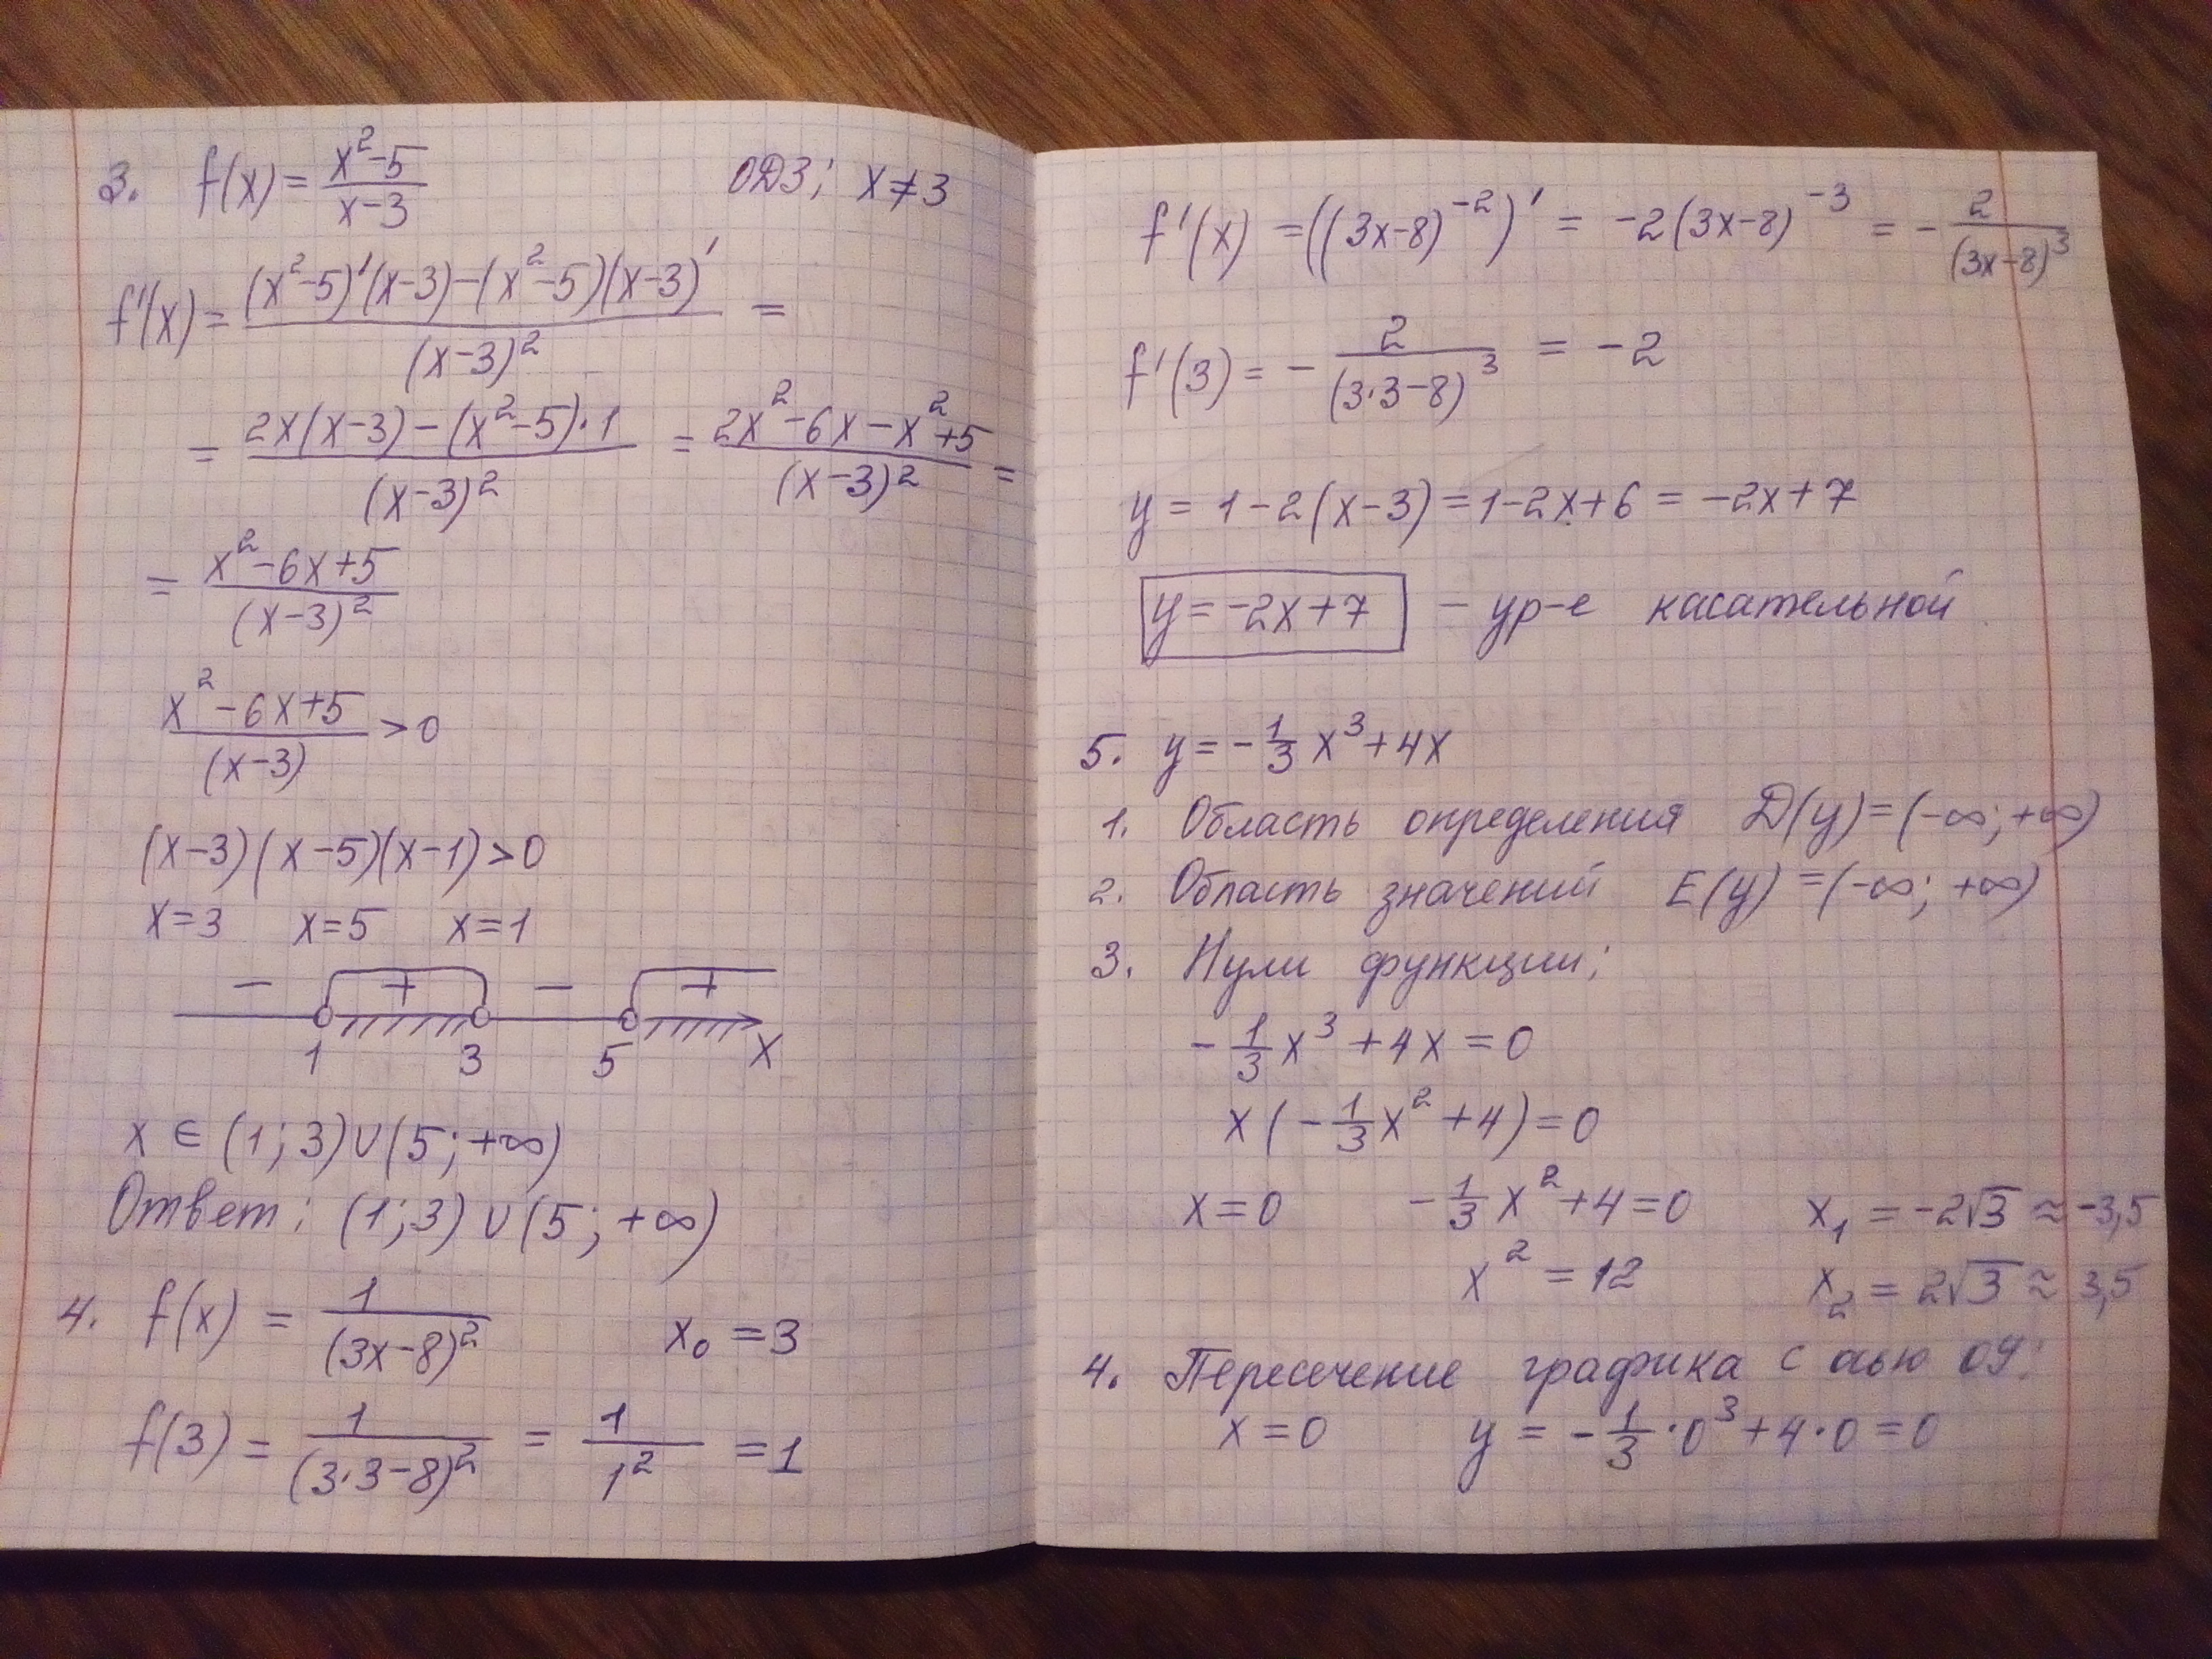 3. f(x) = (x² - 5)/(x - 3) ОДЗ: x ≠ 3
f'(x) = ((x² - 5)'(x - 3) - (x² - 5)(x - 3)')/(x - 3)² =
= (2x(x - 3) - (x² - 5)·1)/(x - 3)² = (2x² - 6x - x² + 5)/(x - 3)² =
= (x² - 6x + 5)/(x - 3)²
(x² - 6x + 5)/(x - 3) > 0
(x - 3)(x - 5)(x - 1) > 0
x = 3 x = 5 x = 1
- + - +
1 3 5 x
x ∈ (1; 3) ∪ (5; +∞)
Ответ: (1; 3) ∪ (5; +∞)
4. f(x) = 1/(3x - 8)² x₀ = 3
f(3) = 1/(3·3 - 8)² = 1/1² = 1
f'(x) = ((3x - 8)⁻²)' = -2(3x - 8)⁻³ = - 2/(3x - 8)³
f'(3) = - 2/(3·3 - 8)³ = -2
y = 1 - 2(x - 3) = 1 - 2x + 6 = -2x + 7
y = -2x + 7 - ур-е касательной
5. y = - 1/3 x³ + 4x
1. Область определения D(y) = (-∞; +∞)
2. Область значений E(y) = (-∞; +∞)
3. Нули функции:
- 1/3 x³ + 4x = 0
x(- 1/3 x² + 4) = 0
x = 0 - 1/3 x² + 4 = 0 x₁ = -2√3 ≈ -3,5
x² = 12 x₂ = 2√3 ≈ 3,5
4. Пересечение графика с осью ОУ:
x = 0 y = - 1/3 · 0³ + 4·0 = 0